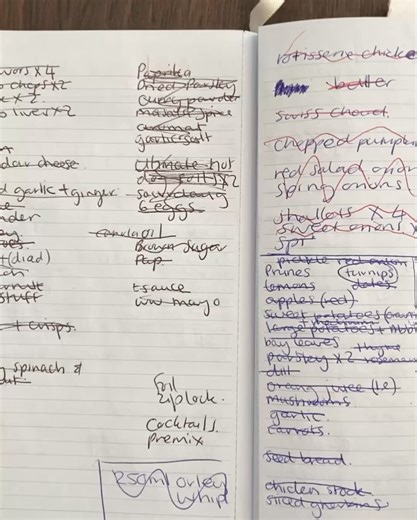 wors x 4
chops x 2
x 2.
liver x 2
cheese
garlic + ginger
(diad)
stuff
+ crisps.
spinach &
Paprika
Dried Parsley
Curry powder
masala spice
aromat
garlic salt
Ultimate hot
dog roll x 2
sourdoug
6 eggs
canola oil
Brown sugar
Pap
t sauce
low mayo
Foil
ziplock.
cocktails
premix
250ml orley
whip
rotisserie chicke
butter
swiss chard.
chopped pumpkin
red salad onion
spring onions
shallots x 4
sweet onions x
Spi
pickle red onion
Prunes turnips
lemons dates
apples (red)
sweet potatoes
large potatoes +
bay leaves thyme
parsley x 2 rosemar
dill
orange juice (1l)
mushrooms
garlic
carrots.
seed bread.
chicken stock
sliced gherkins